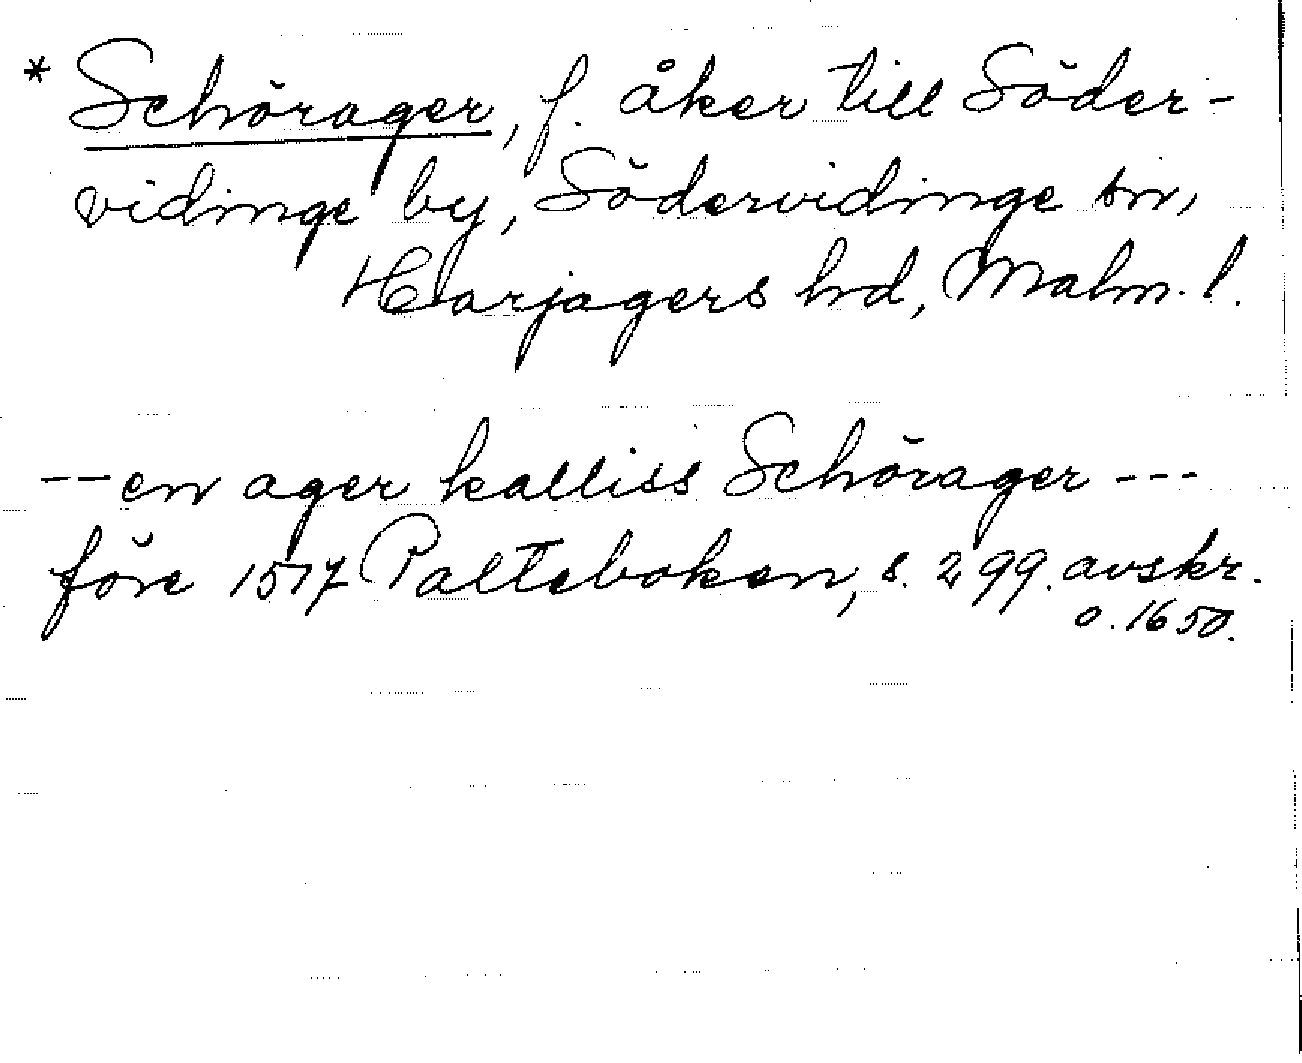 * Schörager, f. åker till Söder-
vidinge by, Södervidinge sn,
Harjagers hd, Malm. l.
-- en ager kalliss Schörager ---
före 1517 Palteboken, s. 299. avskr.
o. 1650.